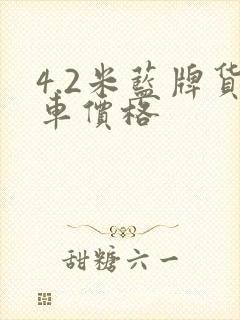 4.2米藍牌貨
車價格
甜糖六一